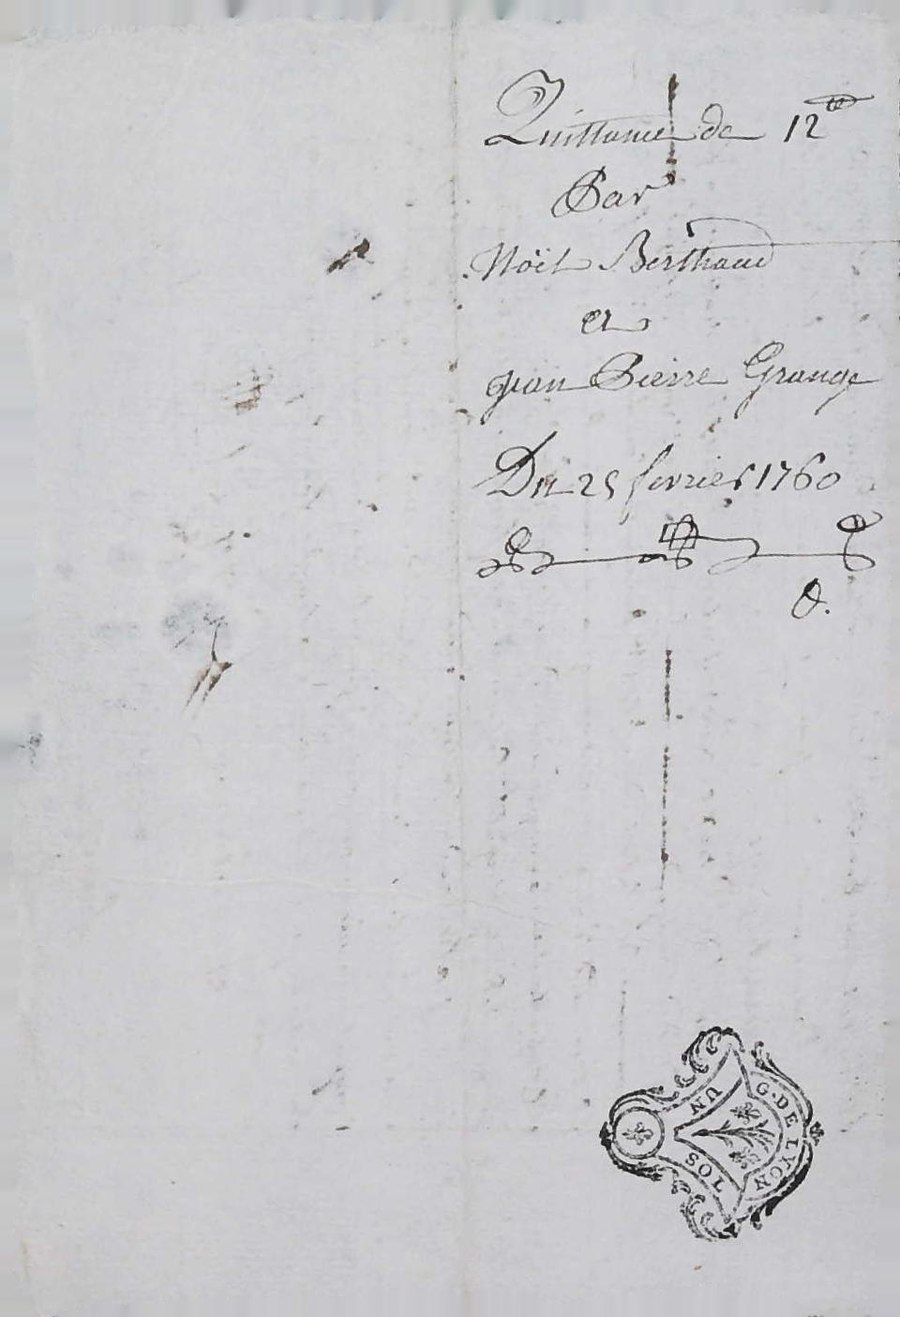 Quittance de 12<sup>tt</sup>
Par
Noël Berthaud
et
Jean Pierre Grange
Du 25 fevrier 1760
G. DE LYON
UN
SOL